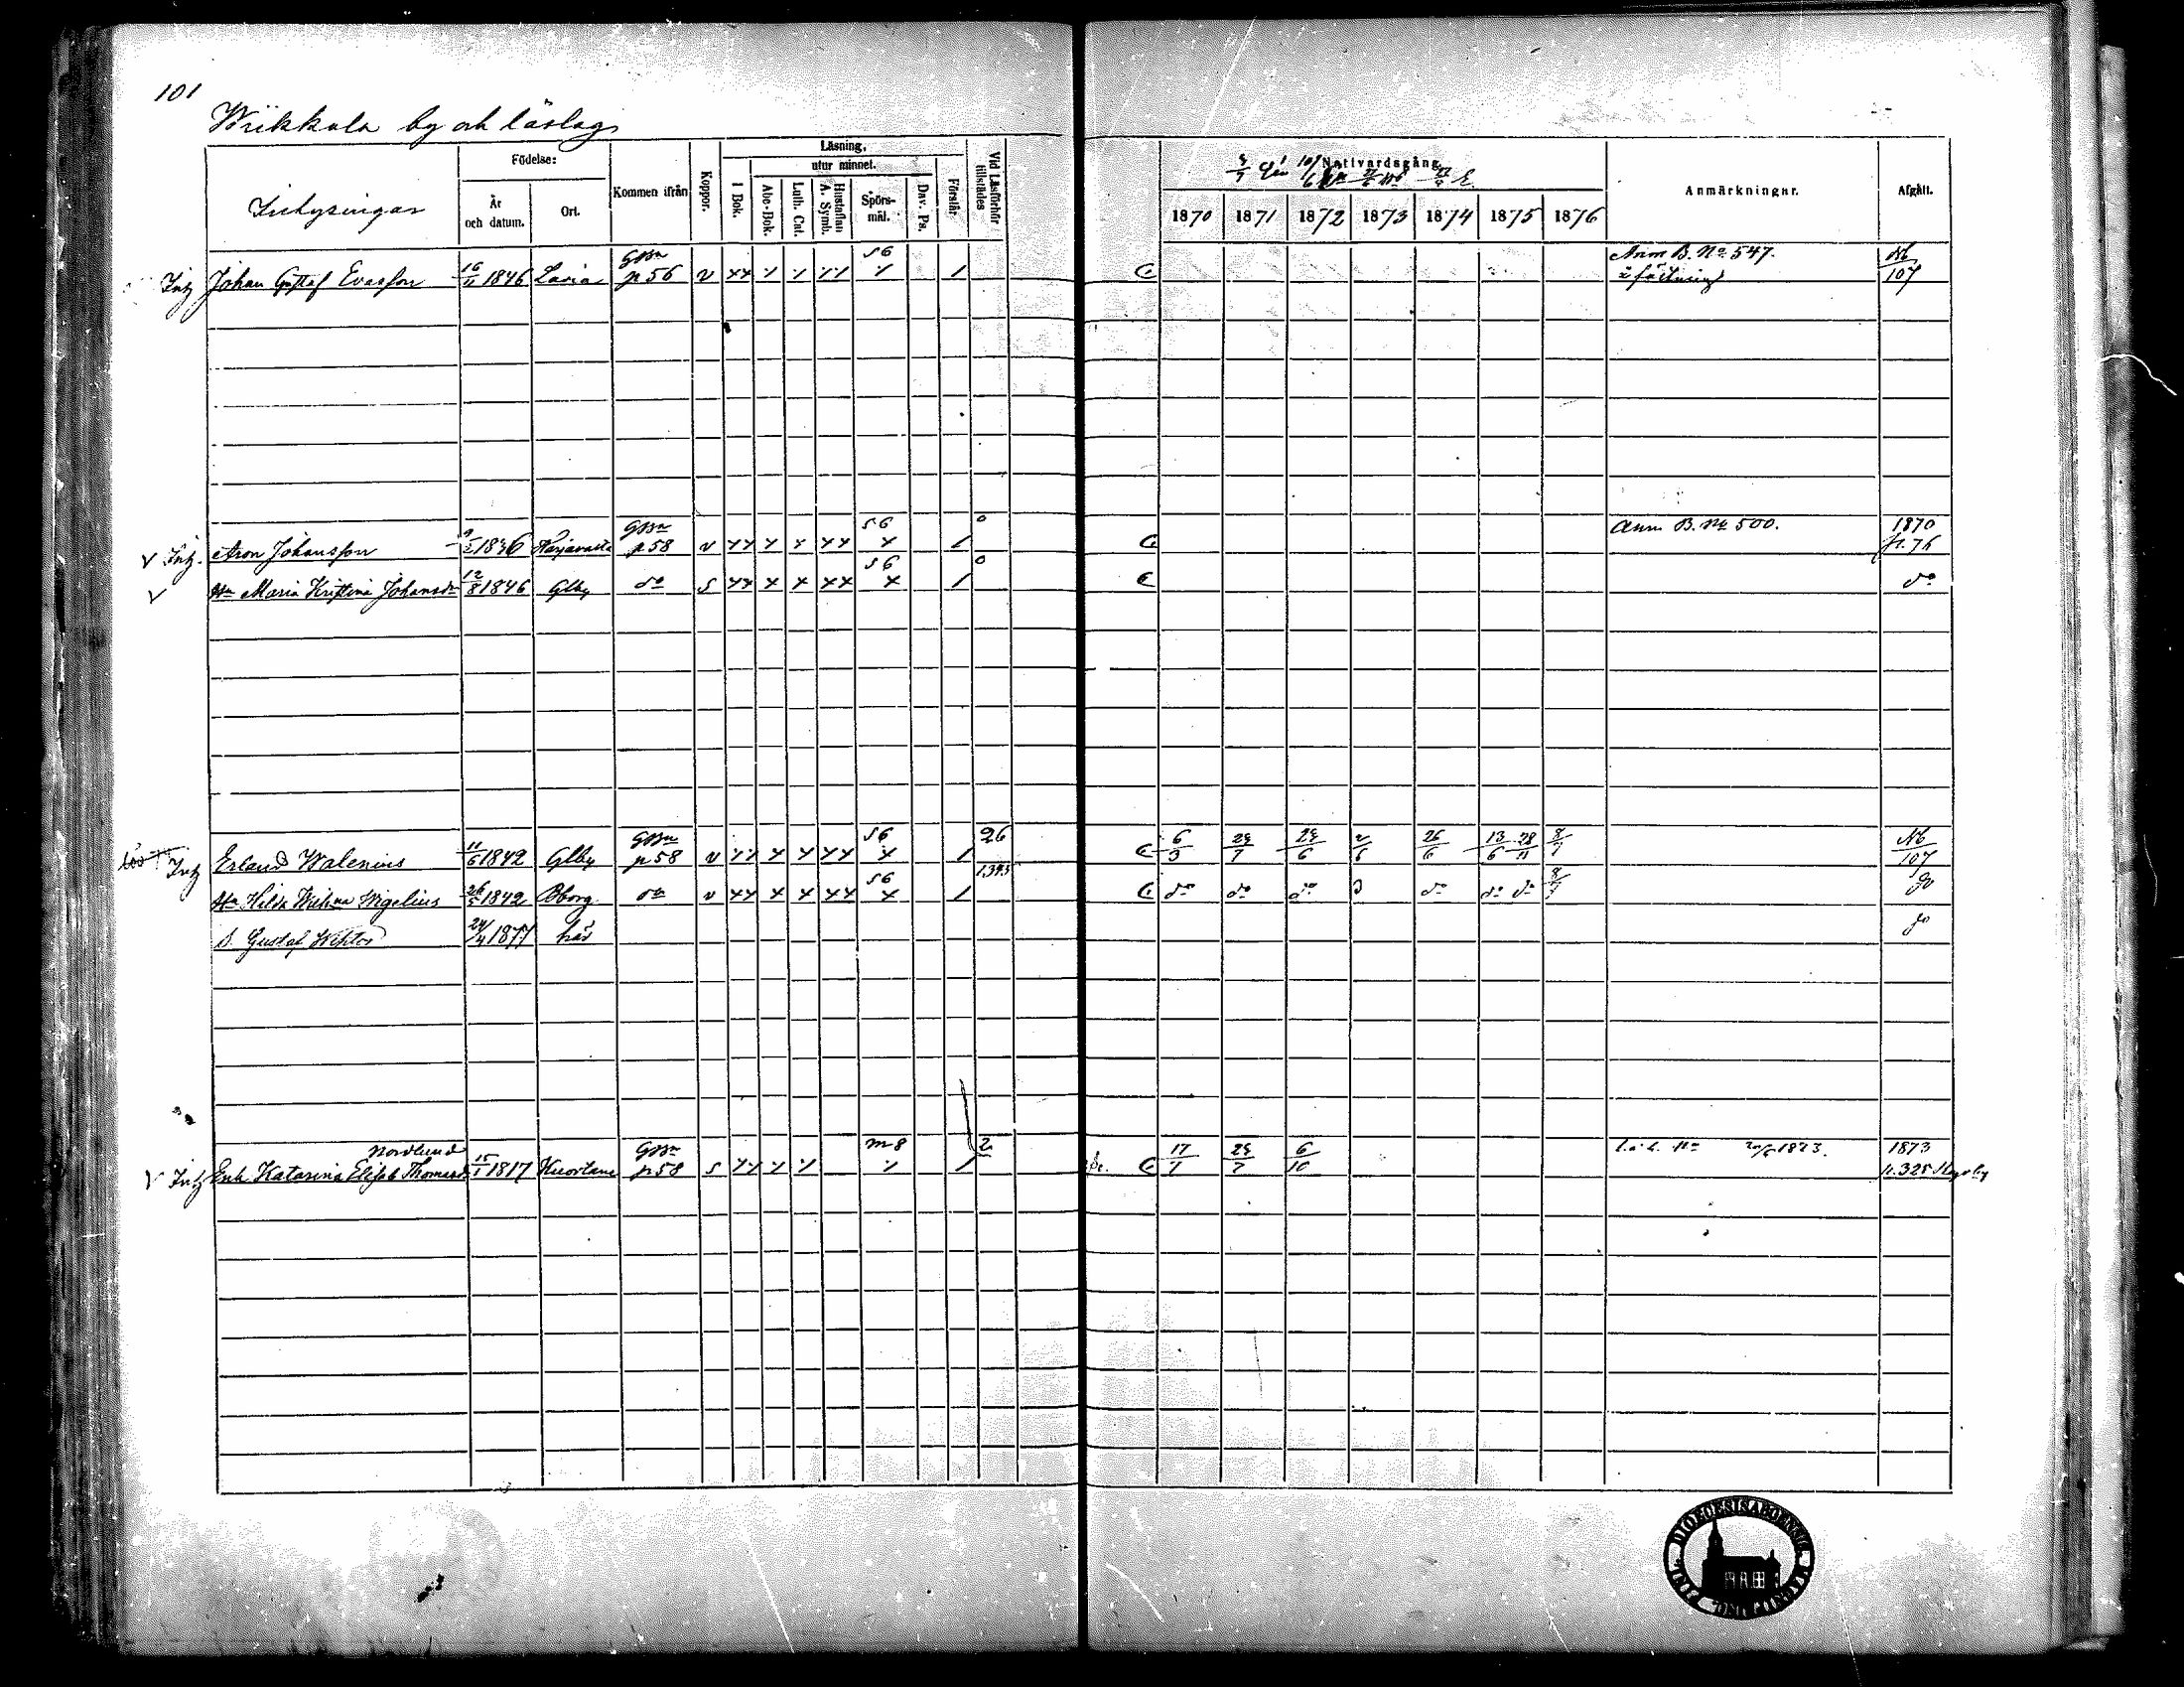 101
Wiikkala by och läslag
Inhysingar
Födelse:
År och datum.
Ort.
Kommen ifrån
Koppor.
Läsning.
I Bok.
utur minnet.
Abc-Bok.
Luth. Cat.
Hustaflan A. Symb.
Spörs-mål.
Dav. Ps.
Förstår
Vid Läsförhör tillstädes
Nattvardsgång
1870 1871 1872 1873 1874 1875 1876
Anmärkningar.
Afgått.
Inh Johan Gustaf Evasson 16/11 1846 Lavia GBn p 56 v xx / / // 56 / / C Anm B. No. 547. å fästning Nb 107
v Inh. Aron Johansson 1836 Harjavalta GBn p 58 v xx x x xx 56 x / 0 C Anm B. No 500. 1870 p. 76
v Hu Maria Kristina Johansdr 12/8 1846 Glby do s xx x x xx 56 x / 0 C do
Inh Erland Walenius 11/6 1842 Glby GBn p 58 v // x x xx 56 x / 26 C 6/3 29/7 29/6 2/6 26/6 13/6 28/11 8/7 Nb 107
Hu Hilda Wilhna Wigelius 26/5 1842 Bborg do v xx x x xx 56 x / 1.3.4.5 C do do do do do do 8/7 do
S. Gustaf Wiktor 24/4 1877 här do
Nordlund
v Inh Enk Katarina Elisab Thomasdr 15/1 1817 Kuortane GBn p 58 s // / / m 8 / / 2 C 17/7 29/7 6/10 1873. 1873 p. 325
FINL. DIOECESIS ABOENSIS